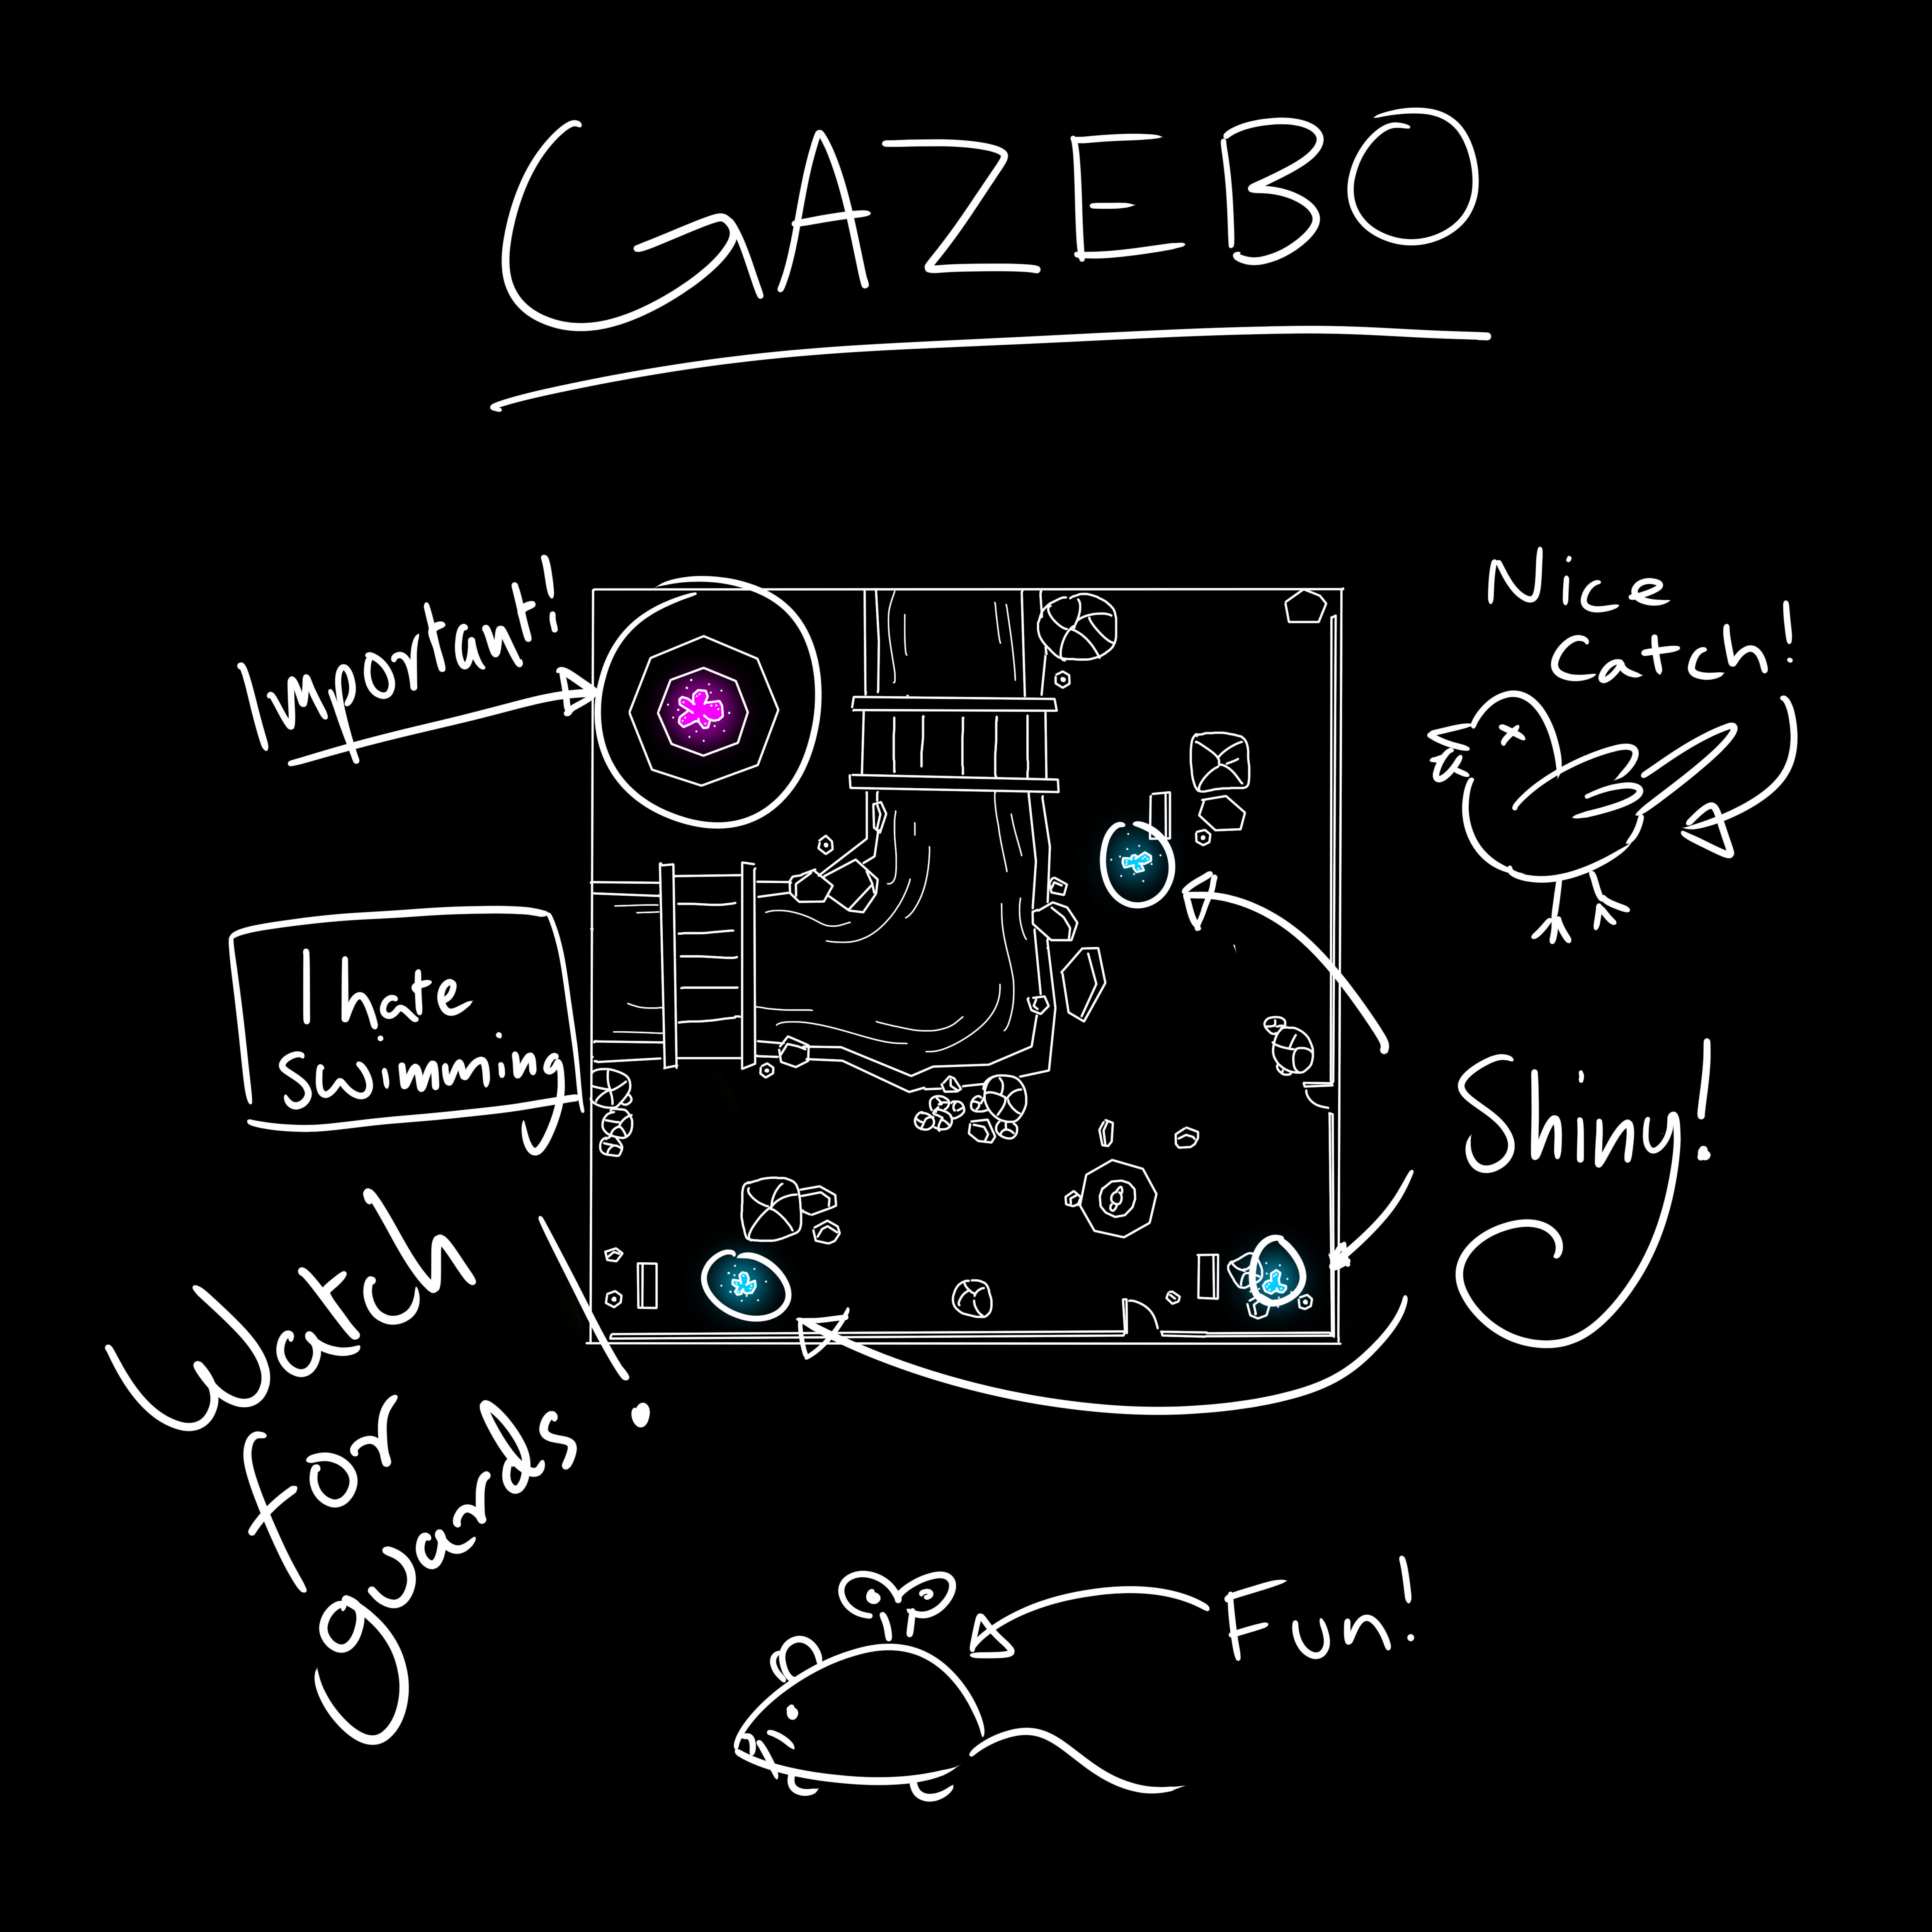 GAZEBO
Important!
Nice
Catch!
I hate
swimming
Shiny!
Watch
for
guards!
Fun!